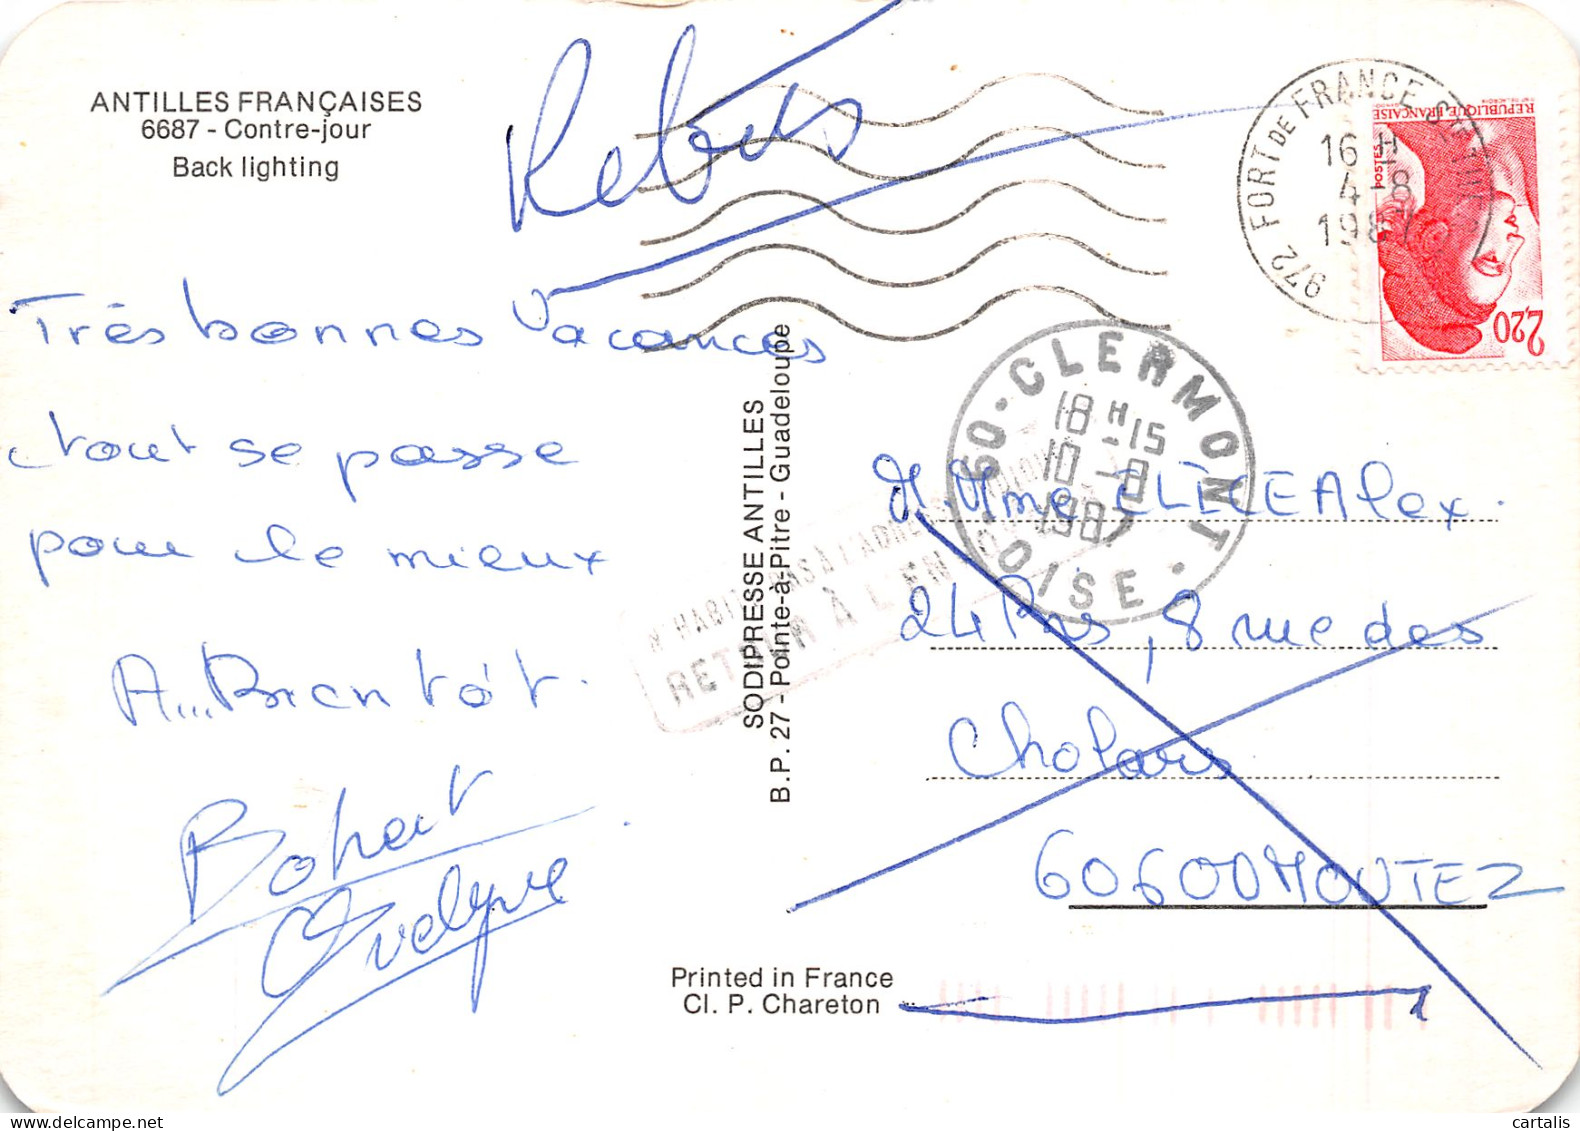 ANTILLES FRANÇAISES
6687 - Contre-jour
Back lighting
Rebus
Très bonnes Vacances
tout se passe
pour le mieux
A... Bientôt.
Evelyne
SODIPRESSE ANTILLES
B.P. 27 - Pointe-à-Pitre - Guadeloupe
Printed in France
Cl. P. Chareton
972 FORT DE FRANCE
16 H
4-8
1987
REPUBLIQUE FRANÇAISE
POSTES
2,20
60 - CLERMONT - OISE
18 H 15
10 - 8
1987
N'HABITE PAS À L'ADRESSE
RETOUR À L'EN
M. Mme Alex.
24 Bis, 8 rue des
60600 MOUTEZ
cartalis